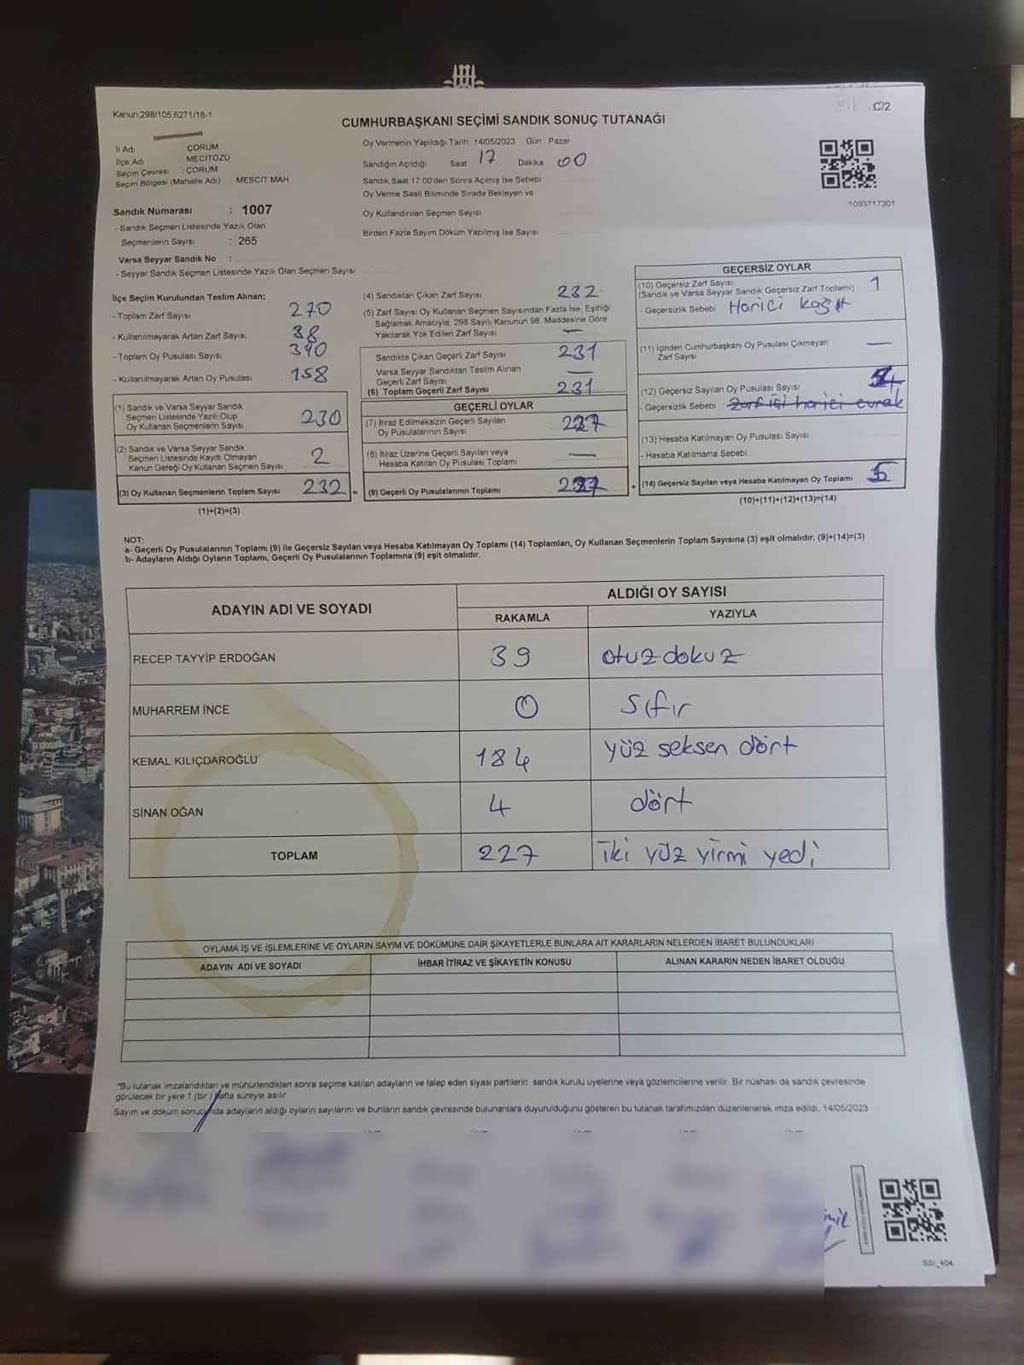 Kanun:298/105,6271/18-1
C/2
CUMHURBAŞKANI SEÇİMİ SANDIK SONUÇ TUTANAĞI
İl Adı : ÇORUM
İlçe Adı : MECİTÖZÜ
Seçim Çevresi : ÇORUM
Seçim Bölgesi (Mahalle Adı) : MESCİT MAH.
Sandık Numarası : 1007
- Sandık Seçmen Listesinde Yazılı Olan
Seçmenlerin Sayısı : 265
Varsa Seyyar Sandık No :
- Seyyar Sandık Seçmen Listesinde Yazılı Olan Seçmen Sayısı
Oy Vermenin Yapıldığı Tarih 14/05/2023 Gün Pazar
Sandığın Açıldığı Saat 17 Dakika 00
Sandık Saat 17:00'den Sonra Açılmış İse Sebebi
Oy Verme Saati Bitiminde Sırada Bekleyen ve
Oy Kullandırılan Seçmen Sayısı
Birden Fazla Sayım Döküm Yapılmış İse Sayısı
1093717301
İlçe Seçim Kurulundan Teslim Alınan;
- Toplam Zarf Sayısı 270
- Kullanılmayarak Artan Zarf Sayısı 38
- Toplam Oy Pusulası Sayısı 390
- Kullanılmayarak Artan Oy Pusulası 158
(1) Sandık ve Varsa Seyyar Sandık
Seçmen Listesinde Yazılı Olup
Oy Kullanan Seçmenlerin Sayısı 230
(2) Sandık ve Varsa Seyyar Sandık
Seçmen Listesinde Kayıtlı Olmayan
Kanun Gereği Oy Kullanan Seçmen Sayısı 2
(3) Oy Kullanan Seçmenlerin Toplam Sayısı 232
(1)+(2)=(3)
(4) Sandıktan Çıkan Zarf Sayısı 232
(5) Zarf Sayısı Oy Kullanan Seçmen Sayısından Fazla İse, Eşitliği
Sağlamak Amacıyla, 298 Sayılı Kanunun 98. Maddesine Göre
Yakılarak Yok Edilen Zarf Sayısı —
Sandıkta Çıkan Geçerli Zarf Sayısı 231
Varsa Seyyar Sandıktan Teslim Alınan
Geçerli Zarf Sayısı —
(6) Toplam Geçerli Zarf Sayısı 231
GEÇERLİ OYLAR
(7) İtiraz Edilmeksizin Geçerli Sayılan
Oy Pusulalarının Sayısı 227
(8) İtiraz Üzerine Geçerli Sayılan veya
Hesaba Katılan Oy Pusulası Toplamı —
(9) Geçerli Oy Pusulalarının Toplamı 227
GEÇERSİZ OYLAR
(10) Geçersiz Zarf Sayısı
(Sandık ve Varsa Seyyar Sandık Geçersiz Zarf Toplamı) 1
- Geçersizlik Sebebi Harici kağıt
(11) İçinden Cumhurbaşkanı Oy Pusulası Çıkmayan
Zarf Sayısı —
(12) Geçersiz Sayılan Oy Pusulası Sayısı 4
- Geçersizlik Sebebi Zarf içi harici evrak
(13) Hesaba Katılmayan Oy Pusulası Sayısı
- Hesaba Katılmama Sebebi
(14) Geçersiz Sayılan veya Hesaba Katılmayan Oy Toplamı 5
(10)+(11)+(12)+(13)=(14)
NOT:
a- Geçerli Oy Pusulalarının Toplamı (9) ile Geçersiz Sayılan veya Hesaba Katılmayan Oy Toplamı (14) Toplamları, Oy Kullanan Seçmenlerin Toplam Sayısına (3) eşit olmalıdır. (9)+(14)=(3)
b- Adayların Aldığı Oyların Toplamı, Geçerli Oy Pusulalarının Toplamına (9) eşit olmalıdır.
ADAYIN ADI VE SOYADI
ALDIĞI OY SAYISI
RAKAMLA YAZIYLA
RECEP TAYYİP ERDOĞAN 39 otuz dokuz
MUHARREM İNCE 0 sıfır
KEMAL KILIÇDAROĞLU 184 yüz seksen dört
SİNAN OĞAN 4 dört
TOPLAM 227 iki yüz yirmi yedi
OYLAMA İŞ VE İŞLEMLERİNE VE OYLARIN SAYIM VE DÖKÜMÜNE DAİR ŞİKAYETLERLE BUNLARA AİT KARARLARIN NELERDEN İBARET BULUNDUKLARI
ADAYIN ADI VE SOYADI İHBAR İTİRAZ VE ŞİKAYETİN KONUSU ALINAN KARARIN NEDEN İBARET OLDUĞU
"Bu tutanak imzalandıktan ve mühürlendikten sonra seçime katılan adayların ve talep eden siyasi partilerin sandık kurulu üyelerine veya gözlemcilerine verilir. Bir nüshası da sandık çevresinde
görülecek bir yere 1 (bir) hafta süreyle asılır
Sayım ve döküm sonucunda adayların aldığı oyların sayılarını ve bunların sandık çevresinde bulunanlara duyurulduğunu gösteren bu tutanak tarafımızdan düzenlenerek imza edildi. 14/05/2023
SS1_404